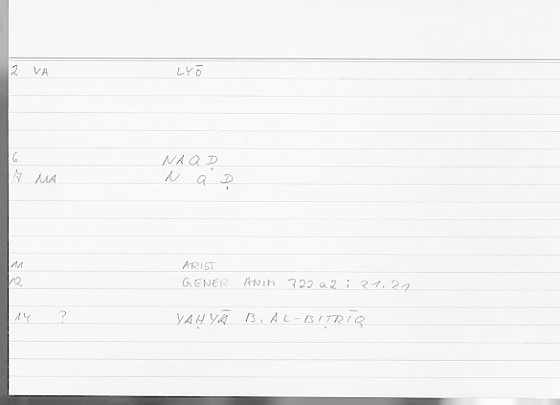 2 VA LYŌ
6 NAQḌ
7 NA N Q Ḍ
11 ARIST
12 GENER ANIM 722 a2 : 21.21
14 ? YAḤYĀ B. AL-BIṬRĪQ